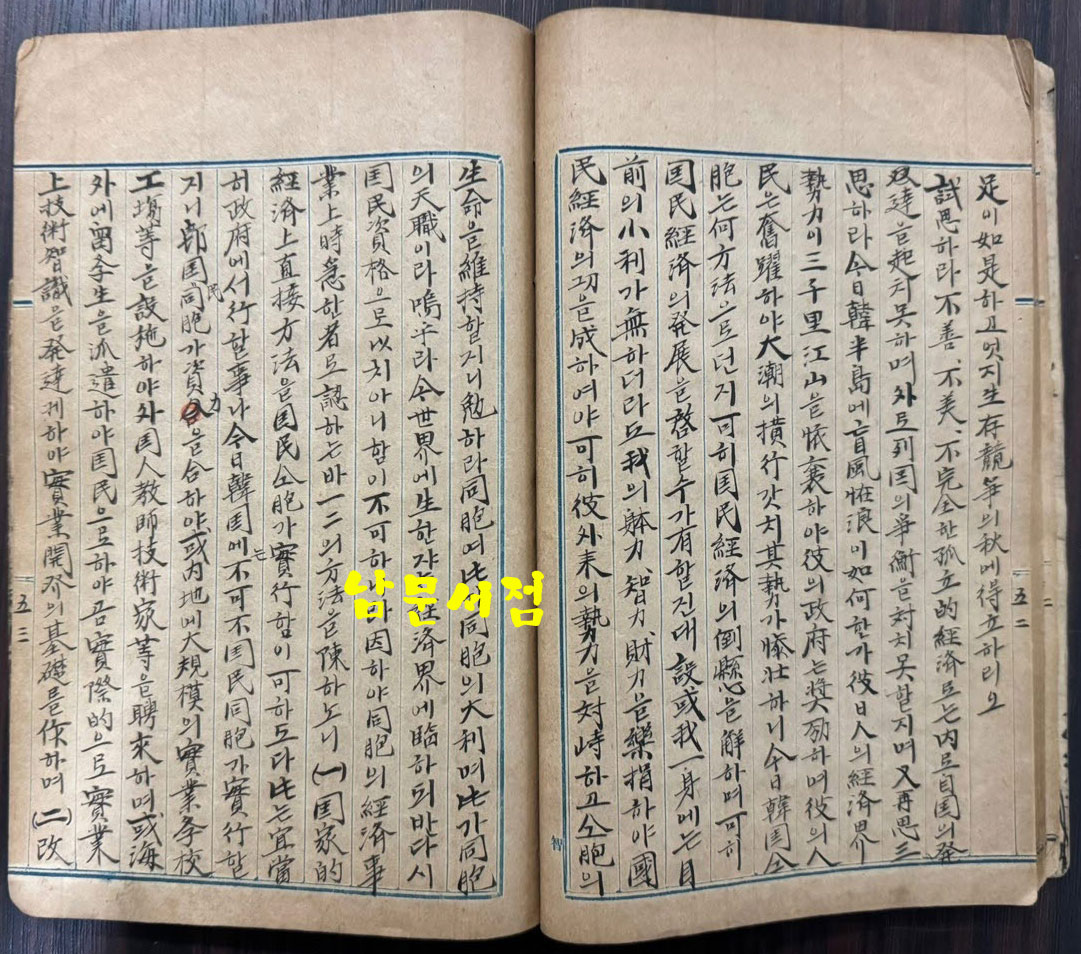 足이如是하고엇지生存競爭의秋에得立하리오
試思하라不善、不美、不完全한孤立的経済로는內로自国의発
達을起치못하며外로列国의爭衡을対치못할지며又再思三
思하라今日韓半島에盲風恠浪이如何한가彼日人의経済界
勢力이三千里江山을懷襄하야彼의政府는奬励하며彼의人
民는奮躍하야大潮의橫行갓치其勢力가膨壮하니今日韓国仝
胞는何方法으로던지可히国民経済의倒懸을解하며可히
国民経済의発展을啓할수가有할진대設或我一身에는目
前의小利가無하더라도我의躰力、智力、財力을樂捐하야國
民経済의功을成하여야可히彼外来의勢力을対峙하고仝胞의
五二
智
生命을維持할지니勉하라同胞여此는同胞의大利며此가同胞
의天職이라嗚乎라今世界에生한쟈経済界에臨하되반다시
国民資格으로以치아니함이不可하因하야同胞의経済事
業上時急한者로認하는바一二의方法을陳하노니(一)国家的
経済上直接方法을国民仝胞가實行함이可하도다此는宜當
히政府에서行할事나今日韓国에는不可不国民同胞가實行할
지니郷国民同胞가資力을合하야或內地에大規模의實業条校
工場等을設施하야外国人教師技術家等을聘求하며或海
外에留条生을派遣하야国民으로하야곰實際的으로實業
上技術智識을発達케하야實業開発의基礎를作하며(二)改
五三
남문서점